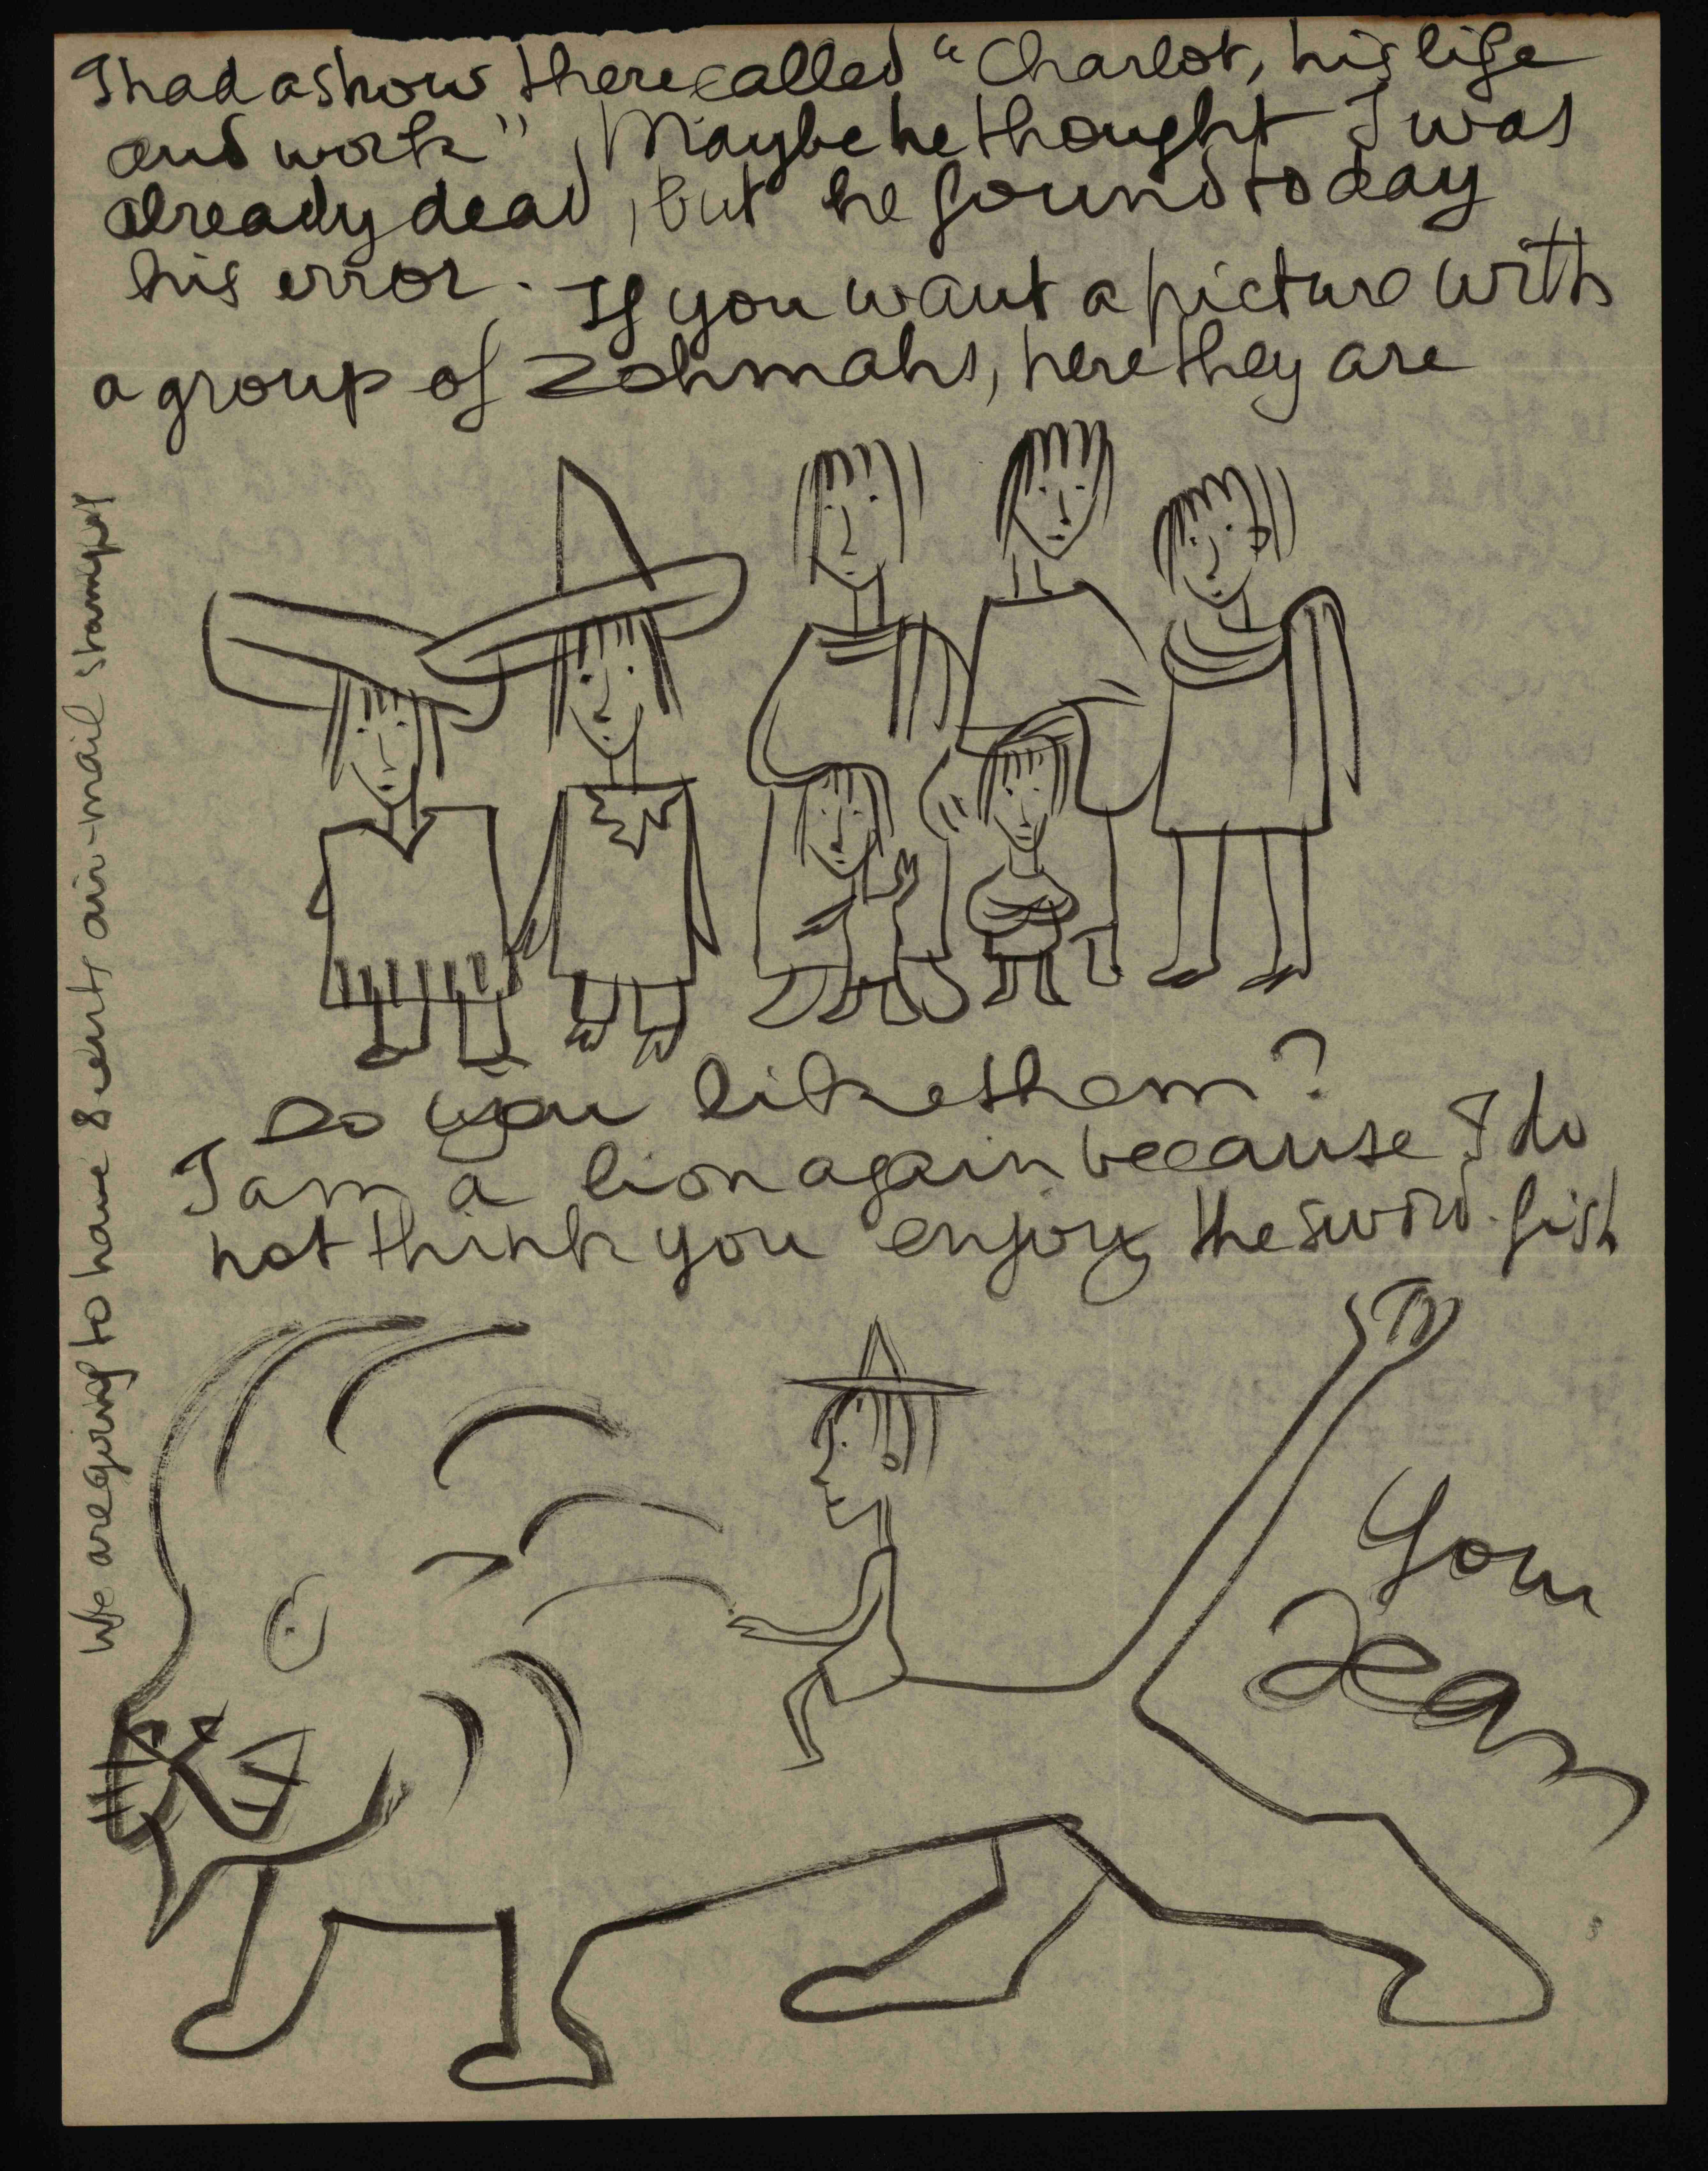 I had a show there called "Charlot, his life
and work", Maybe he thought I was
already dead, but he found today
his error. If you want a picture with
a group of Zohmahs, here they are
Do you like them?
I am a lion again because I do
not think you enjoy the sword-fish
Your
Jean
We are going to have 8 cents air-mail stamps